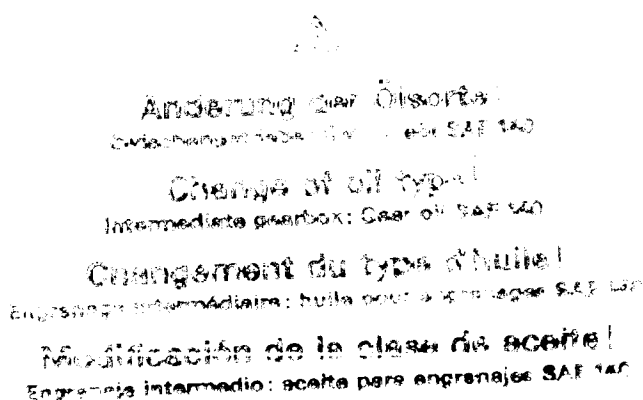 Änderung der Ölsorte!
SAE 140
Change of oil type!
Intermediate gearbox: Gear oil SAE 140
Changement du type d'huile!
Engrenage intermédiaire: huile pour engrenages SAE 140
Modificación de la clase de aceite!
Engranaje intermedio: aceite para engranajes SAE 140